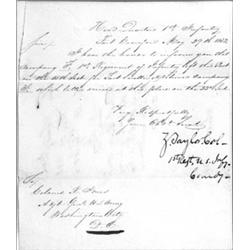 Head Quarters 1st Infantry
Fort Crawford May 29th 18
Sir,
I have the honor to inform you that
Company F. 1st Regiment of Infantry left this Post
on the for Fort Company
the which latter arrived at this place on the 22nd
Very Respectfully
Your Obt Servt
Z Taylor Col.
1st Regt U.S. Infy
Comdg
To,
Colonel R. Jones
Adjt Genl U.S. Army
Washington City
D.C.